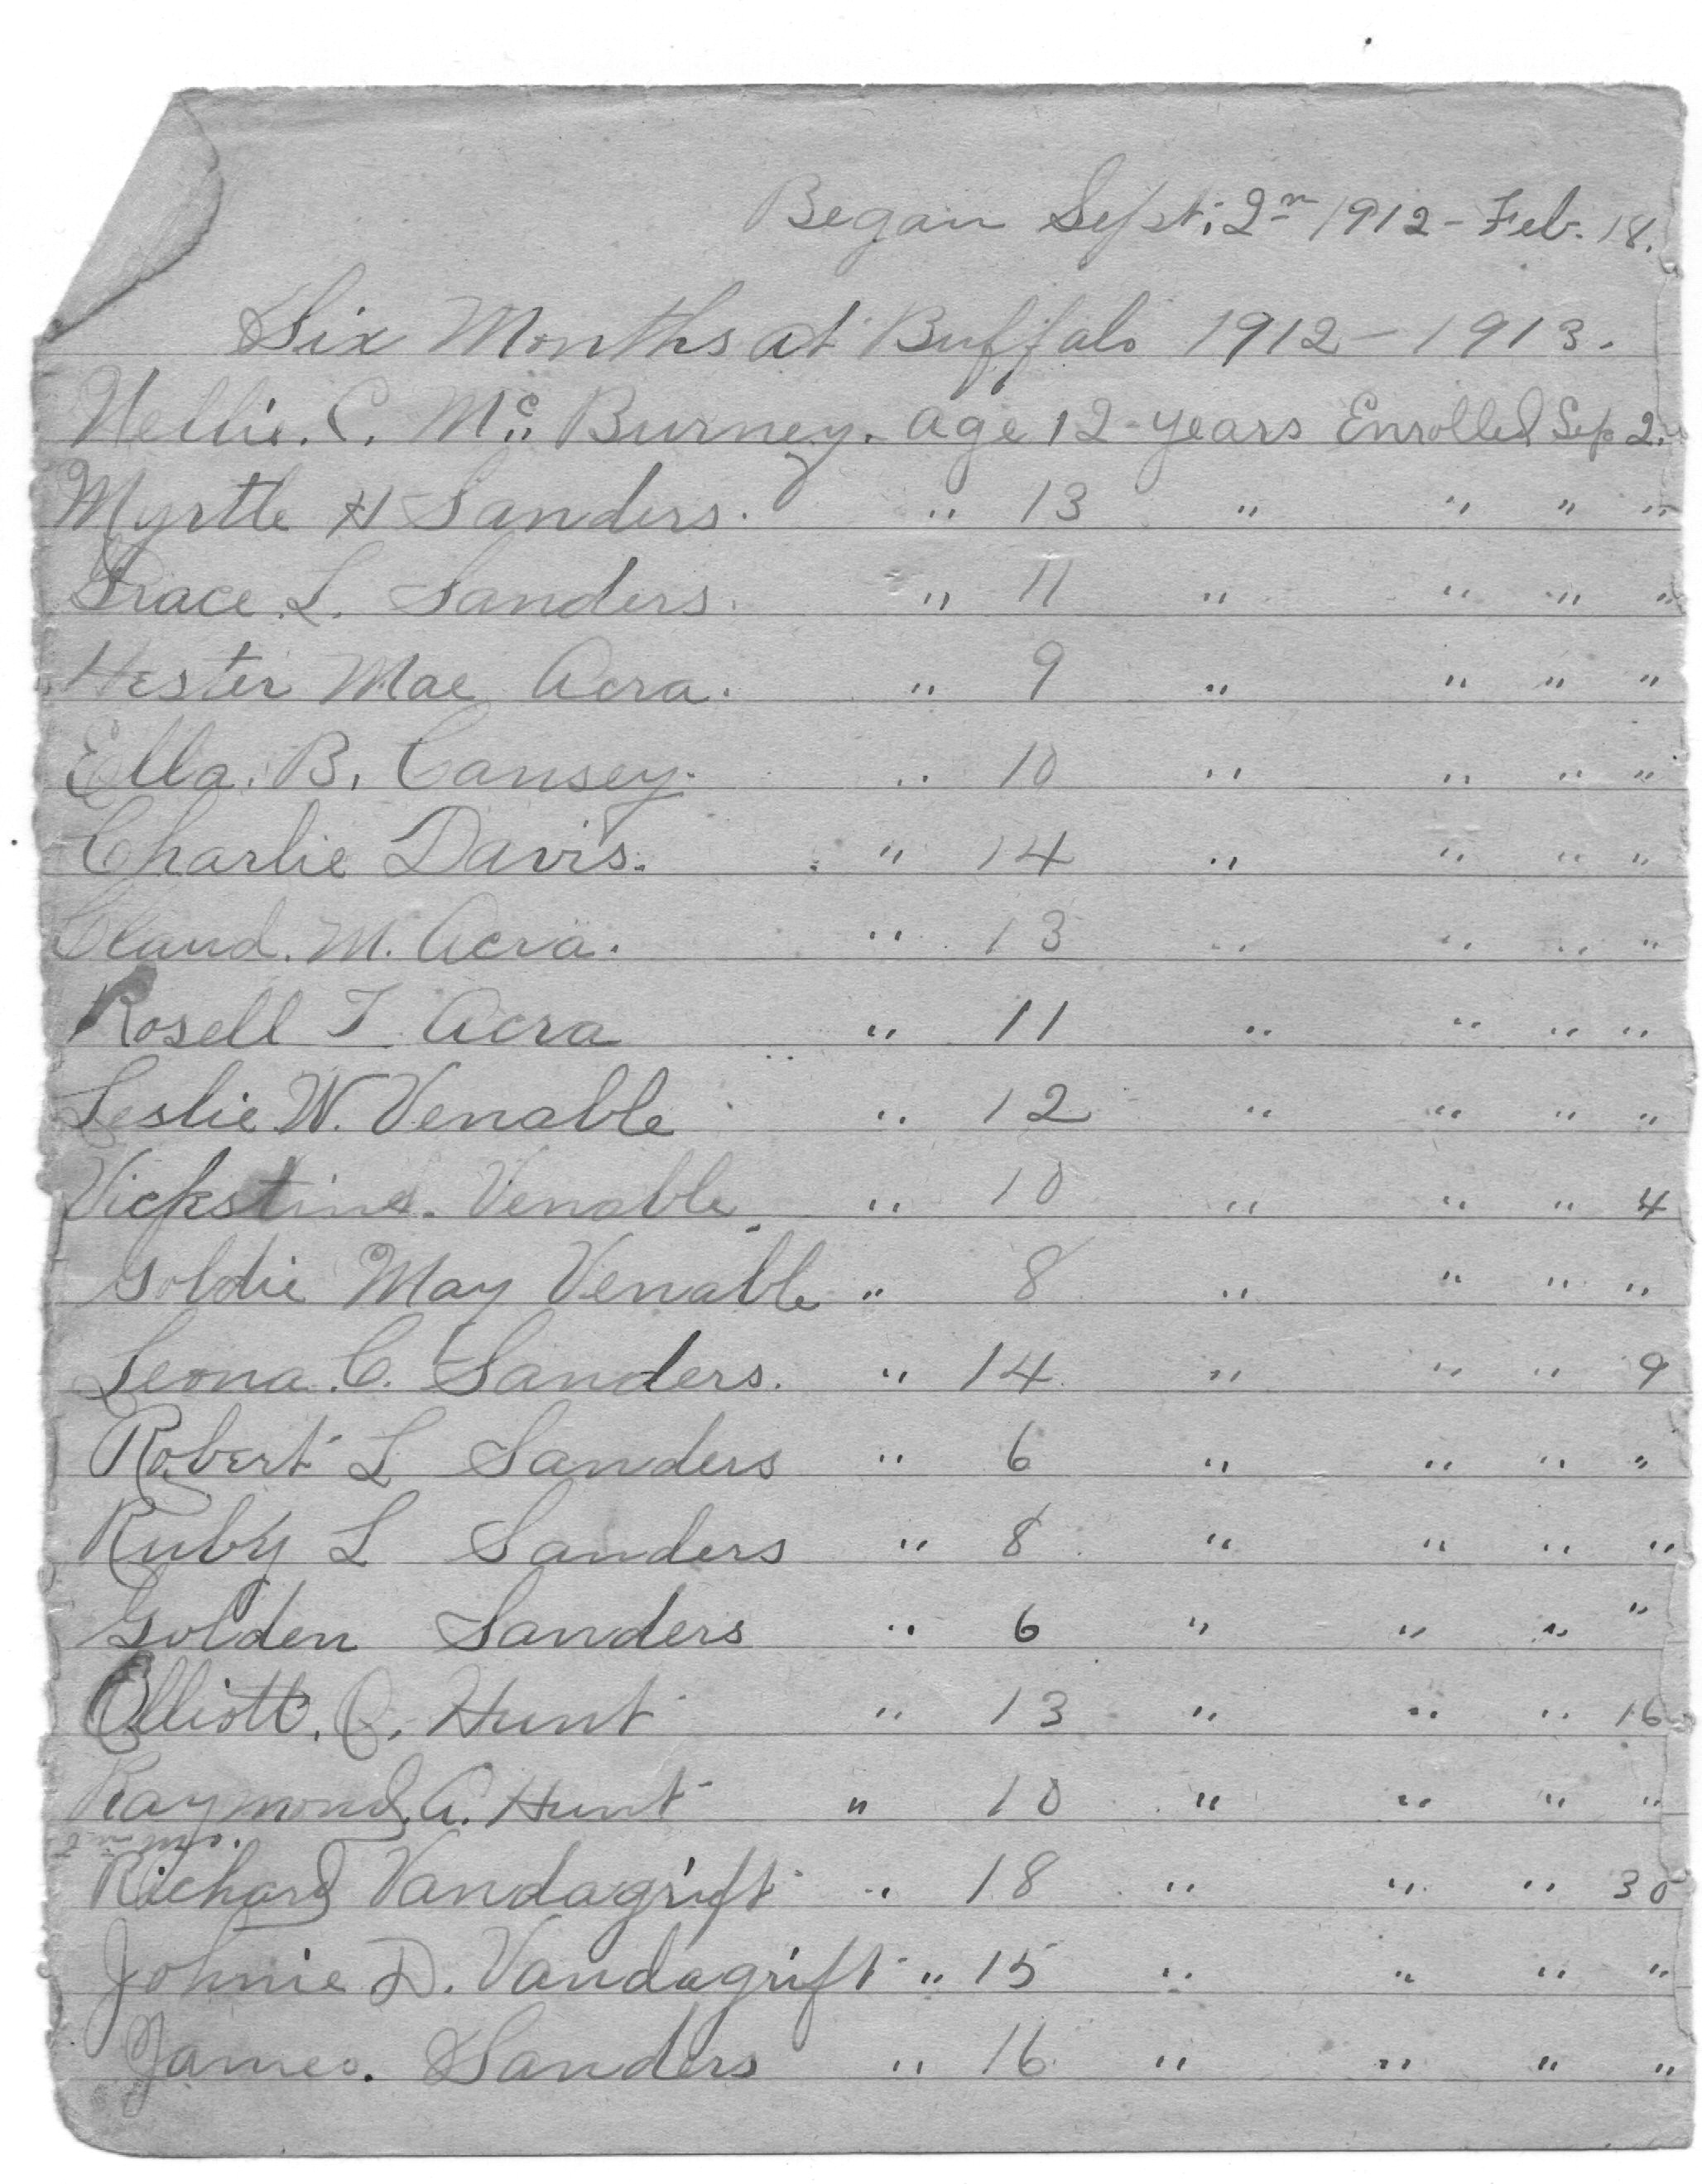 Began Sept. 2n 1912 - Feb. 18.
Six Months at Buffalo 1912 - 1913.
Nellie. C. Mc. Burney. age 12 years Enrolled Sep 2.
Myrtle H Sanders. " 13 " " " "
Grace. L. Sanders. " 11 " " " "
Hester Mae Acra. " 9 " " " "
Ella. B. Causey. " 10 " " " "
Charlie Davis. " 14 " " " "
Claud. M. Acra. " 13 " " " "
Rosell T. Acra " 11 " " " "
Leslie W. Venable " 12 " " " "
Venable. " 10 " " " 4
Goldie May Venable " 8 " " " "
Leona. C. Sanders. " 14 " " " 9
Robert L Sanders " 6 " " " "
Ruby L Sanders " 8 " " " "
Golden Sanders " 6 " " " "
Elliott. O. Hunt " 13 " " " 16
Raymond. A. Hunt " 10 " " " "
mo.
Richard Vandagrift " 18 " " " 30
Johnie D. Vandagrift " 15 " " " "
James. Sanders " 16 " " " "